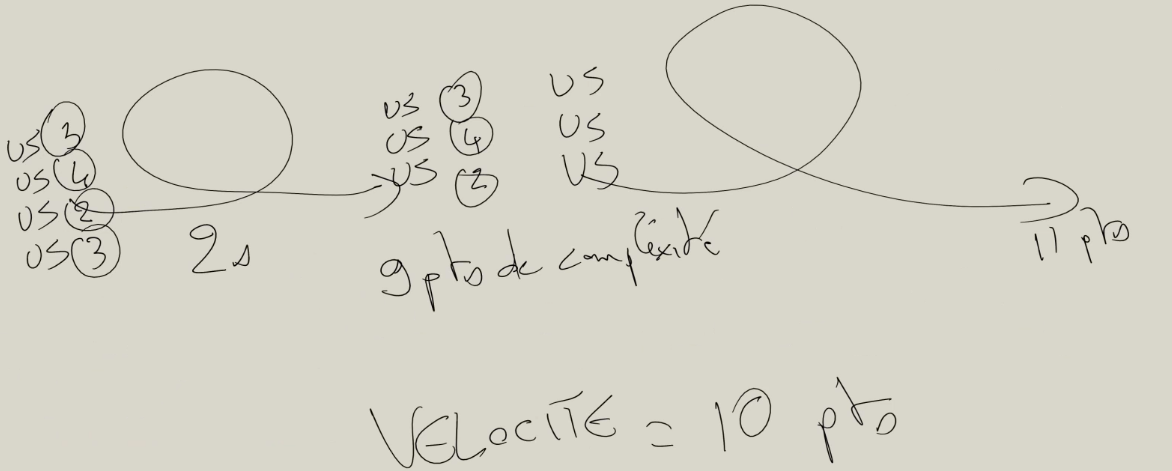 US 3
US 4
US 2
US 3
2s
US 3
US 4
US 2
9 pts de compléxité
US
US
US
11 pts
VELOCITE = 10 pts